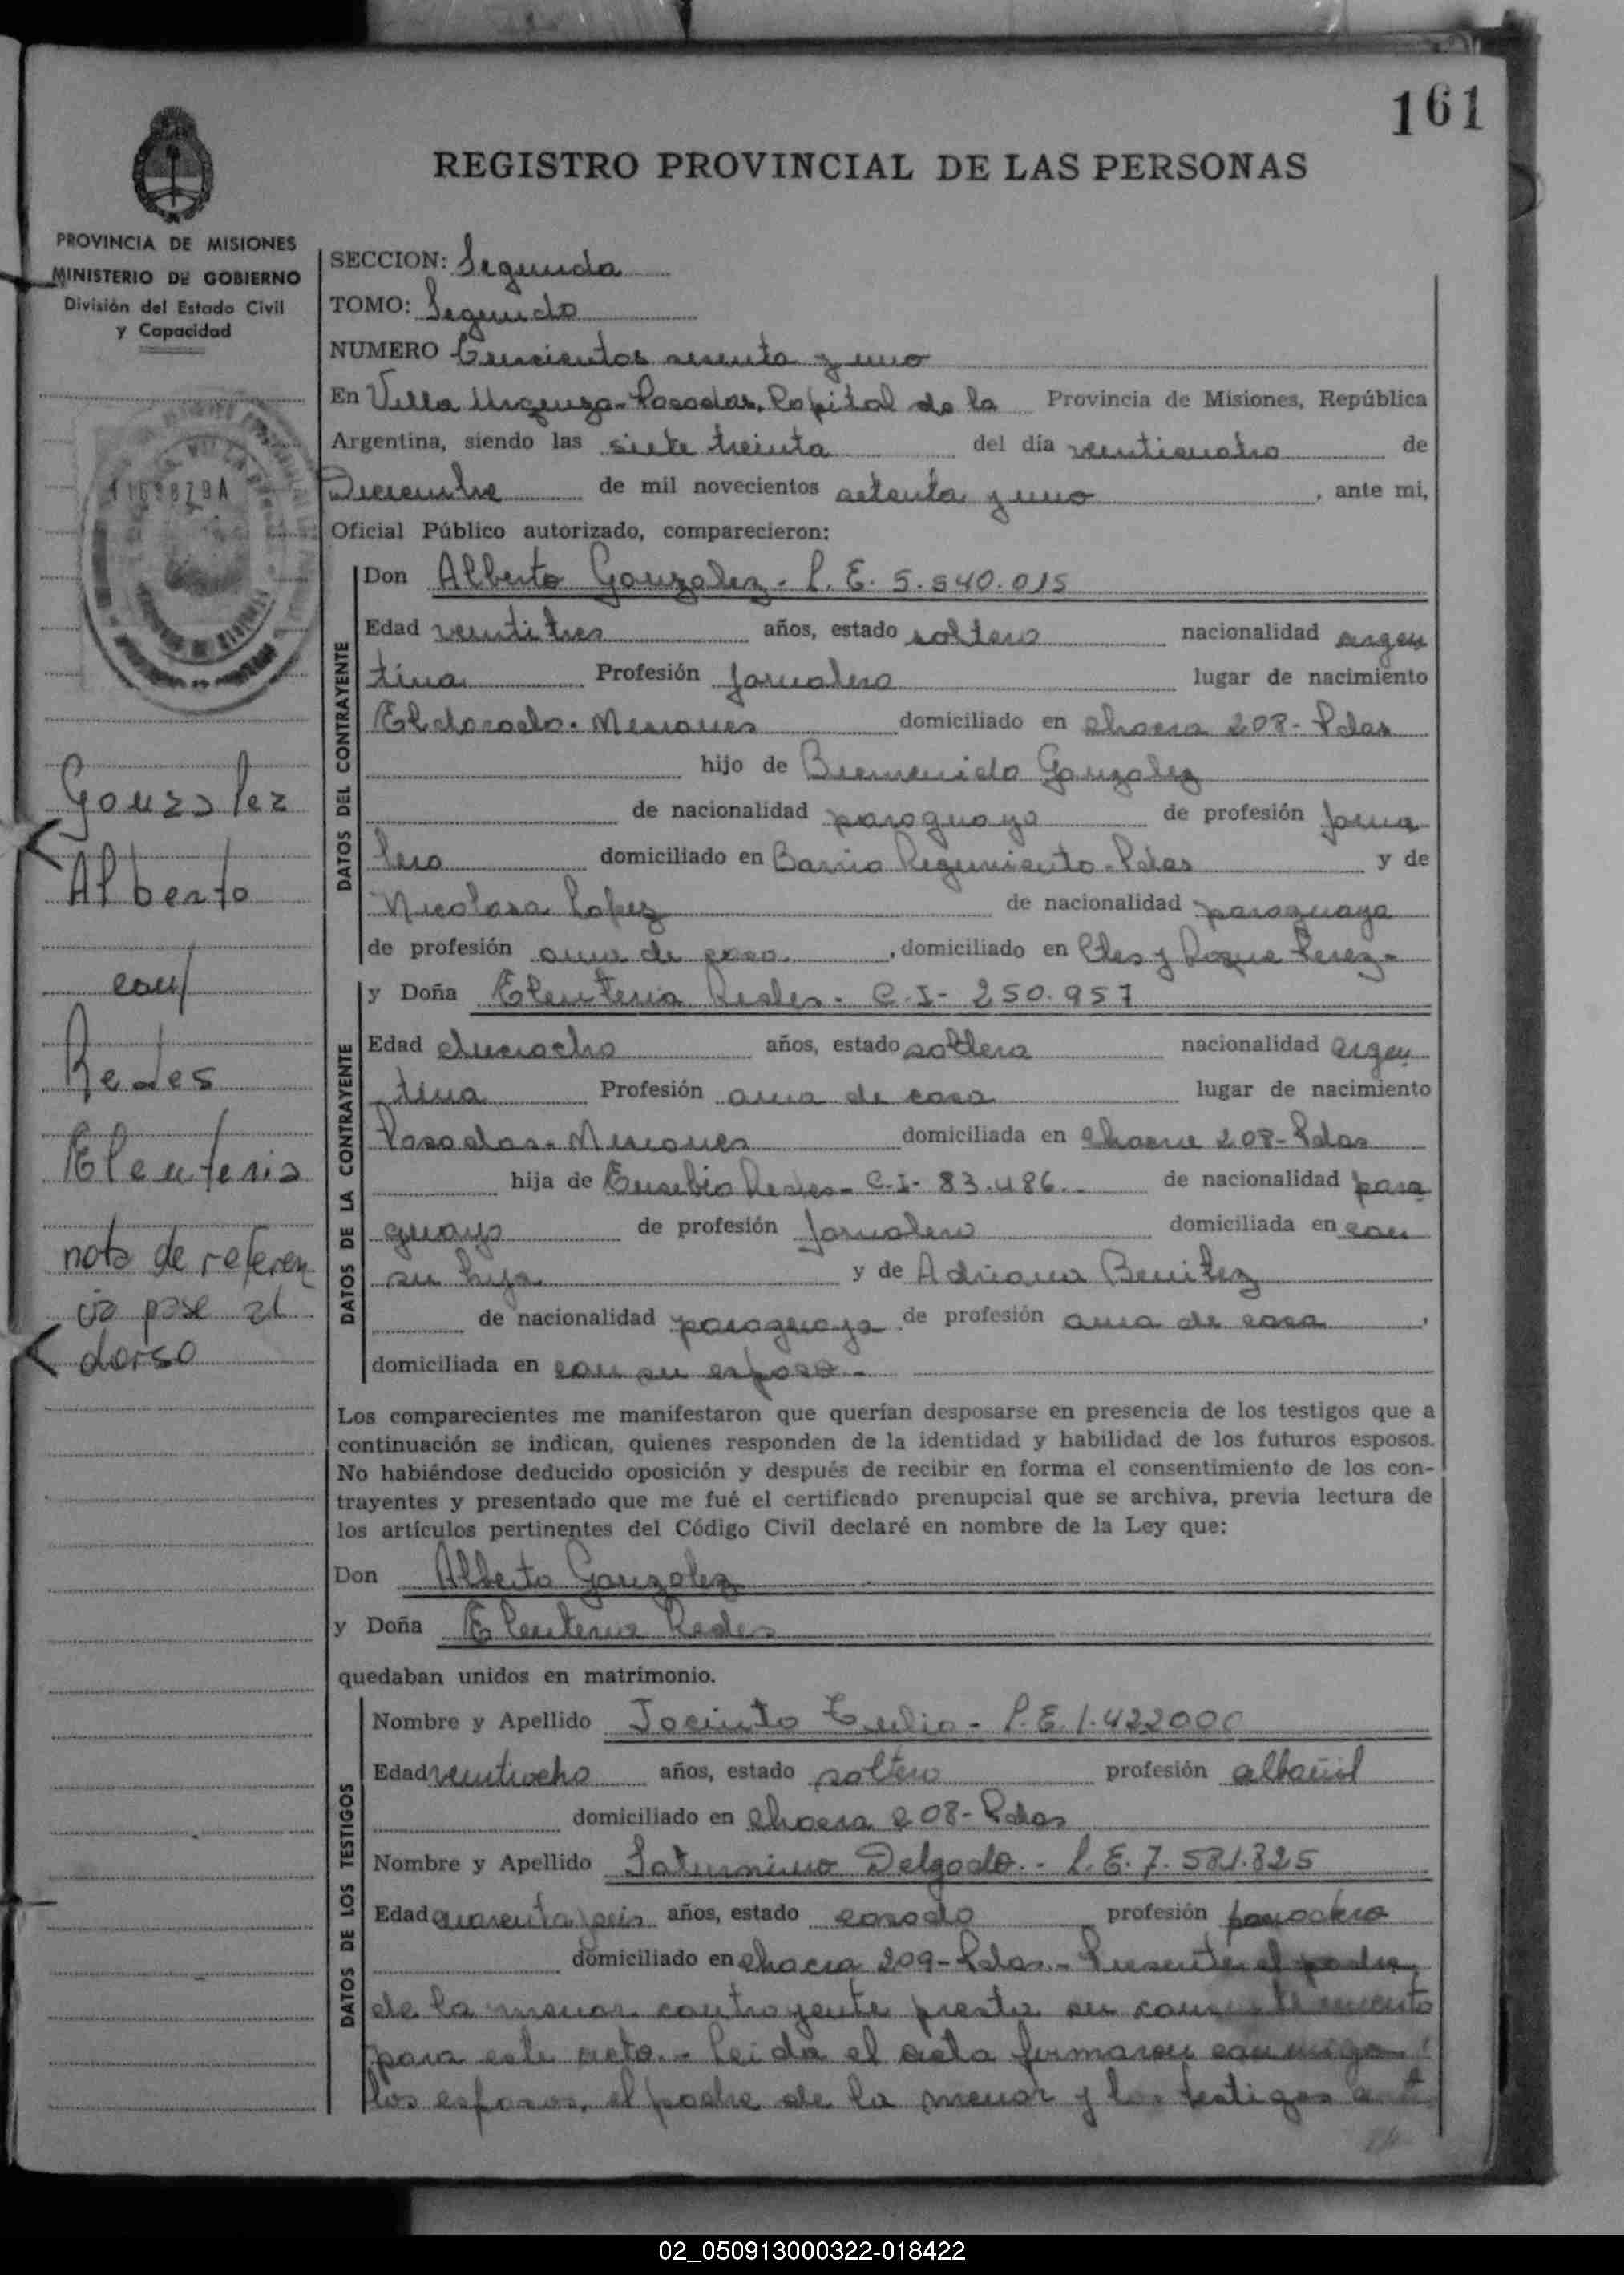 161
REGISTRO PROVINCIAL DE LAS PERSONAS
PROVINCIA DE MISIONES
MINISTERIO DE GOBIERNO
División del Estado Civil
y Capacidad
SECCION: Segunda
TOMO: Segundo
NUMERO sesenta y uno
En Villa Urquiza-Posadas, Capital de la Provincia de Misiones, República
Argentina, siendo las siete treinta del día veinticuatro de
Diciembre de mil novecientos setenta y uno, ante mi,
Oficial Público autorizado, comparecieron:
DATOS DEL CONTRAYENTE
Don Alberto Gonzalez - L. E. 5.540.015
Edad veintitres años, estado soltero nacionalidad argen
tina Profesión Jornalero lugar de nacimiento
Eldorado - Misiones domiciliado en chacra 208 - Pdas
hijo de Bienvenido Gonzalez
de nacionalidad paraguayo de profesión Jorna
lero domiciliado en Barrio Regimiento - Pdas y de
Nicolasa Lopez de nacionalidad paraguaya
de profesión ama de casa, domiciliado en y Roque Perez -
DATOS DE LA CONTRAYENTE
y Doña Eleuteria Redes - C. I - 250.957
Edad dieciocho años, estado soltera nacionalidad argen
tina Profesión ama de casa lugar de nacimiento
Posadas - Misiones domiciliada en chacra 208 - Pdas
hija de Eusebio Redes - C. I - 83.486. - de nacionalidad para
guayo de profesión Jornalero domiciliada en con
su hija y de Adriana Benitez
de nacionalidad paraguaya de profesión ama de casa,
domiciliada en con su esposo. -
Los comparecientes me manifestaron que querían desposarse en presencia de los testigos que a
continuación se indican, quienes responden de la identidad y habilidad de los futuros esposos.
No habiéndose deducido oposición y después de recibir en forma el consentimiento de los con-
trayentes y presentado que me fué el certificado prenupcial que se archiva, previa lectura de
los artículos pertinentes del Código Civil declaré en nombre de la Ley que:
Don Alberto Gonzalez
y Doña Eleuteria Redes
quedaban unidos en matrimonio.
DATOS DE LOS TESTIGOS
Nombre y Apellido Jacinto - L. E. 1.422000
Edad veintiocho años, estado soltero profesión albañil
domiciliado en chacra 208 - Pdas
Nombre y Apellido Saturnino Delgado. - L. E. 7.581.825
Edad cuarenta y seis años, estado casado profesión
domiciliado en chacra 209 - Pdas. - Presente el padre
de la menor contrayente presta su consentimiento
para este acto. - Leida el acta firmaron conmigo
los esposos, el padre de la menor y los testigos
Gonzalez
Alberto
con/
Redes
Eleuteria
nota de referen
cia pase al
dorso
02_050913000322-018422